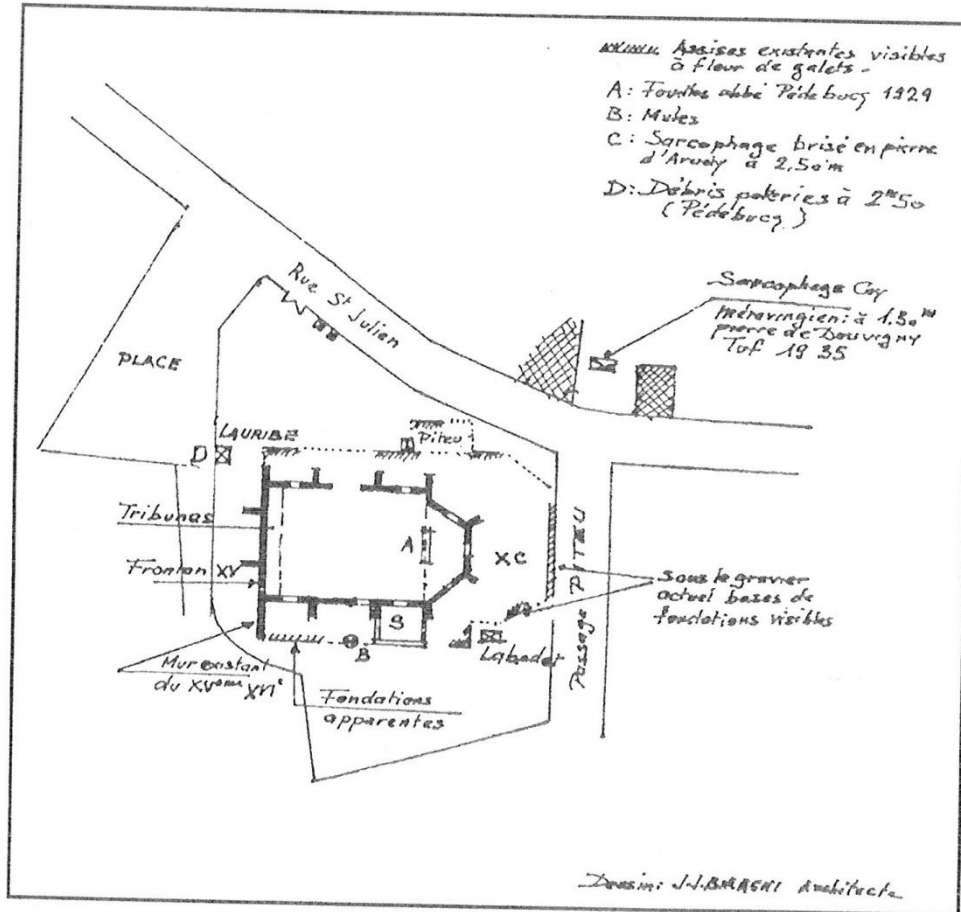 Assises existantes visibles
à fleur de galets -
A: Fouilles abbé Pédebucq 1929
B: Mules
C: Sarcophage brisé en pierre
d'Arudy à 2,50m
D: Débris poteries à 2m50
(Pédebucq)
Sarcophage Coy
mérovingien: à 1.30m
pierre de
Tuf 1935
Rue St Julien
PLACE
LAURIBE
D
Piteu
Tribunes
A
XC
Fronton XV
PASSAGE PITEU
sous le gravier
actuel bases de
fondations visibles
S
B
Labadot
Mur existant
du XVème XVIe
Fondations
apparentes
Dessin: J.J. Architecte